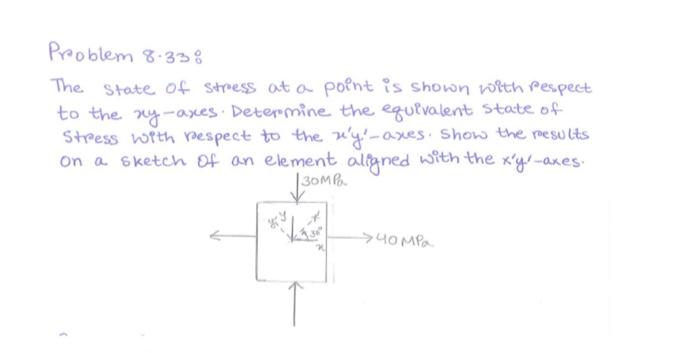 Problem 8.338
The state of stress at a point is shown with respect
to the xy-axes. Determine the equivalent state of
Stress with respect to the x'y'-axes. Show the results
on a sketch of an element aligned with the x'y'-axes.
30MPa
y' y x'
30°
x
40 MPa